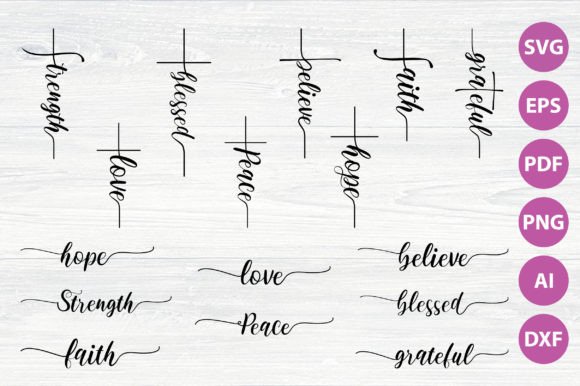 Strength
blessed
believe
faith
grateful
love
Peace
hope
hope
love
believe
Strength
Peace
blessed
faith
grateful
SVG
EPS
PDF
PNG
AI
DXF